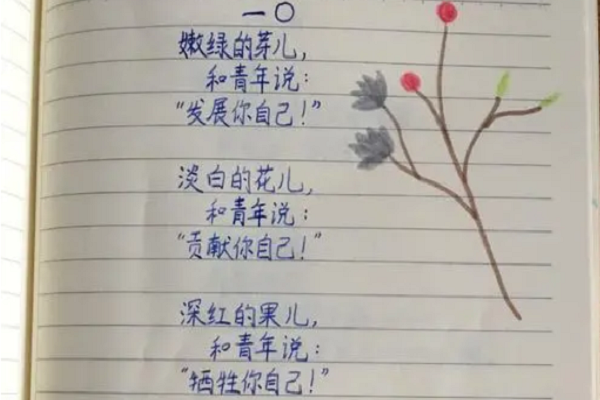 一〇
嫩绿的芽儿，
和青年说：
“发展你自己！”
淡白的花儿，
和青年说：
“贡献你自己！”
深红的果儿，
和青年说：
“牺牲你自己！”